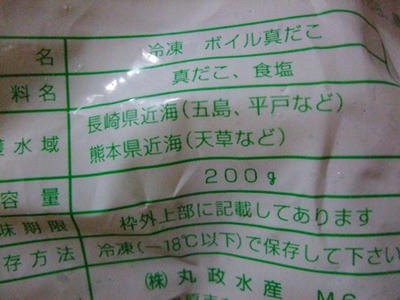 名 冷凍 ボイル真だこ
料名 真だこ、食塩
水域 長崎県近海(五島、平戸など)
熊本県近海(天草など)
容量 200g
味期限 枠外上部に記載してあります
存方法 冷凍(-18℃以下)で保存して下さい
(株)丸政水産